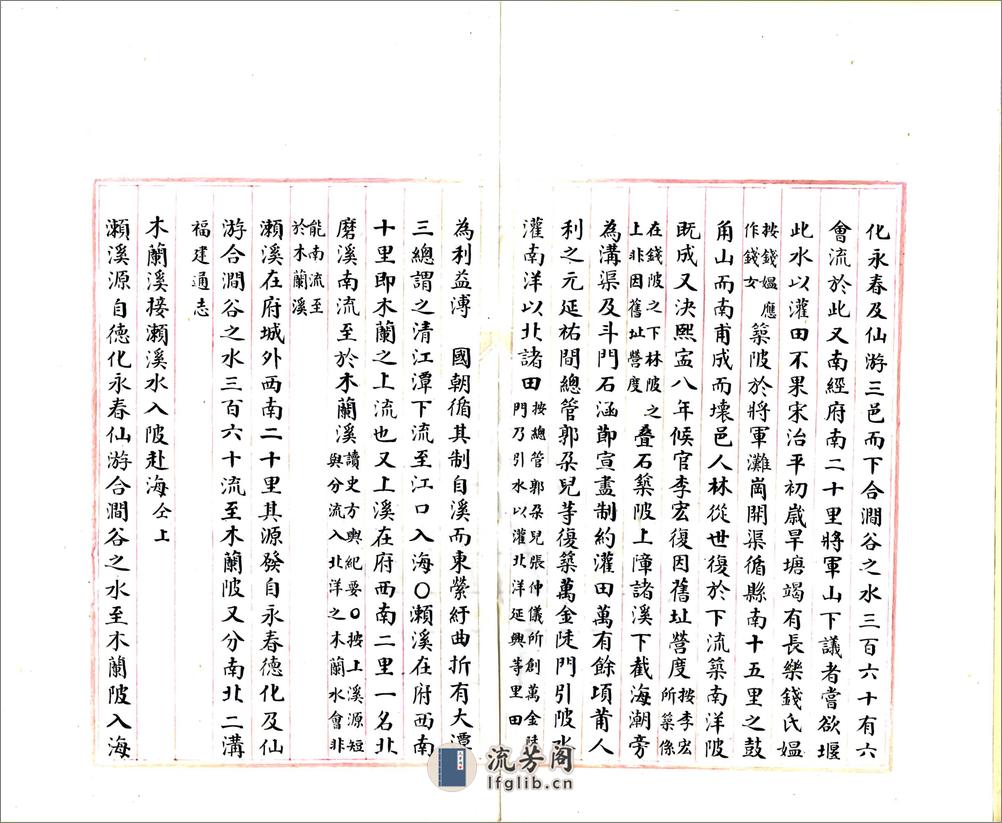 化永春及仙游三邑而下合澗谷之水三百六十有六
會流於此又南經府南二十里將軍山下議者嘗欲堰
此水以灌田不果宋治平初歲旱塘竭有長樂錢氏媼
按錢媼應作錢女築陂於將軍灘崗開渠循縣南十五里之鼓
角山而南甫成而壞邑人林從世復於下流築南洋陂
既成又決熙寍八年候官李宏復因舊址營度按李宏所築係
在錢陂之下林陂之上非因舊址營度疊石築陂上障諸溪下截海潮旁
為溝渠及斗門石涵節宣畫制約灌田萬有餘頃莆人
利之元延祐間總管郭朶兒等復築萬金陡門引陂水
灌南洋以北諸田按總管郭朶兒張仲儀所創萬金陡門乃引水以灌北洋延興等里田
為利益溥 國朝循其制自溪而東縈紆曲折有大潭
三總謂之清江潭下流至江口入海〇瀨溪在府西南
十里即木蘭之上流也又上溪在府西南二里一名北
磨溪南流至於木蘭溪讀史方輿紀要〇按上溪源短與分流入北洋之木蘭水會非
能南流至於木蘭溪
瀨溪在府城外西南二十里其源發自永春德化及仙
游合澗谷之水三百六十流至木蘭陂又分南北二溝
福建通志
木蘭溪接瀨溪水入陂赴海仝上
瀨溪源自德化永春仙游合澗谷之水至木蘭陂入海
流芳阁
lfglib.cn